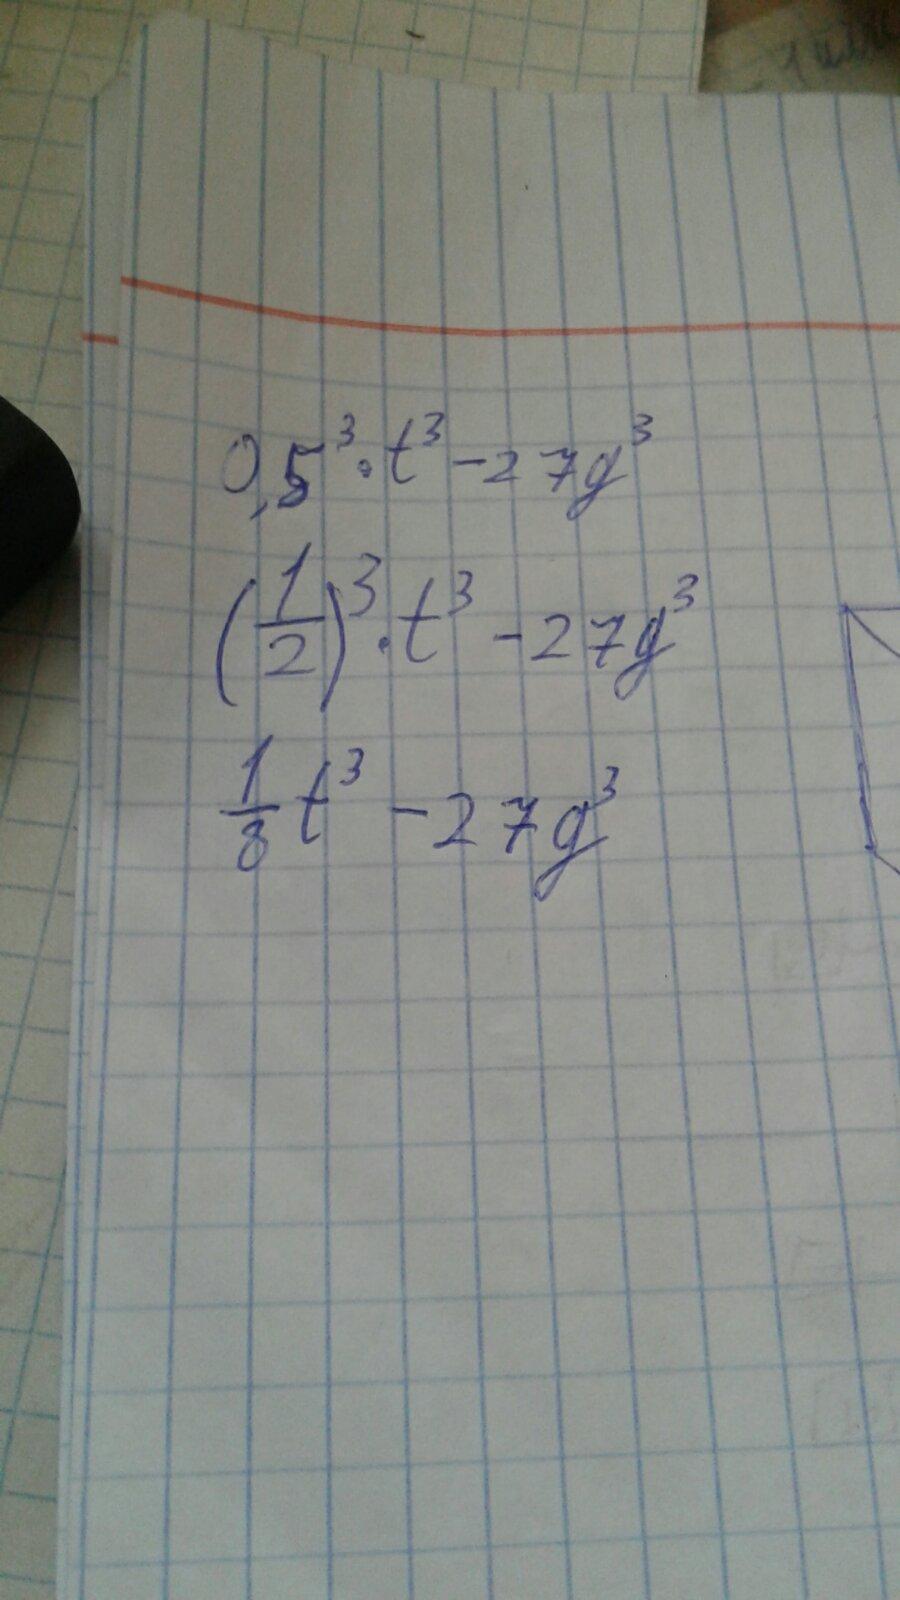 0,5³·t³-27g³
(1/2)³·t³-27g³
1/8 t³-27g³